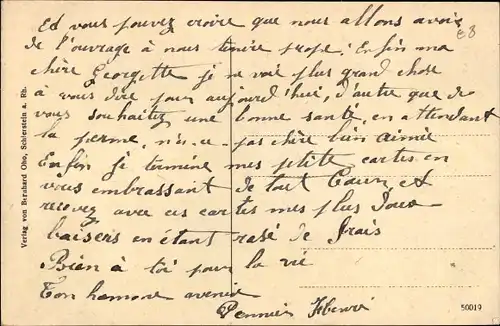 Et vous pouvez croire que nous allons avoir
de l'ouvrage à nous tenire prope. Enfin ma
chère Georgette je ne voie plus grand chose
à vous dire pour aujourd'hui, d'autre que de
vous souhaitez une bonne santé, en attendant
la perme, n'es-ce-pas chère bien aimée
Enfin je termine mes ptite cartes en
vous embrassant de tout Coeur, et
recevez avec ces cartes mes plus doux
baisers en étant rasé de frais
Bien à toi pour la vie
Ton avenir
Henri
Verlag von Bernhard Oho, Schierstein a. Rh.
50019